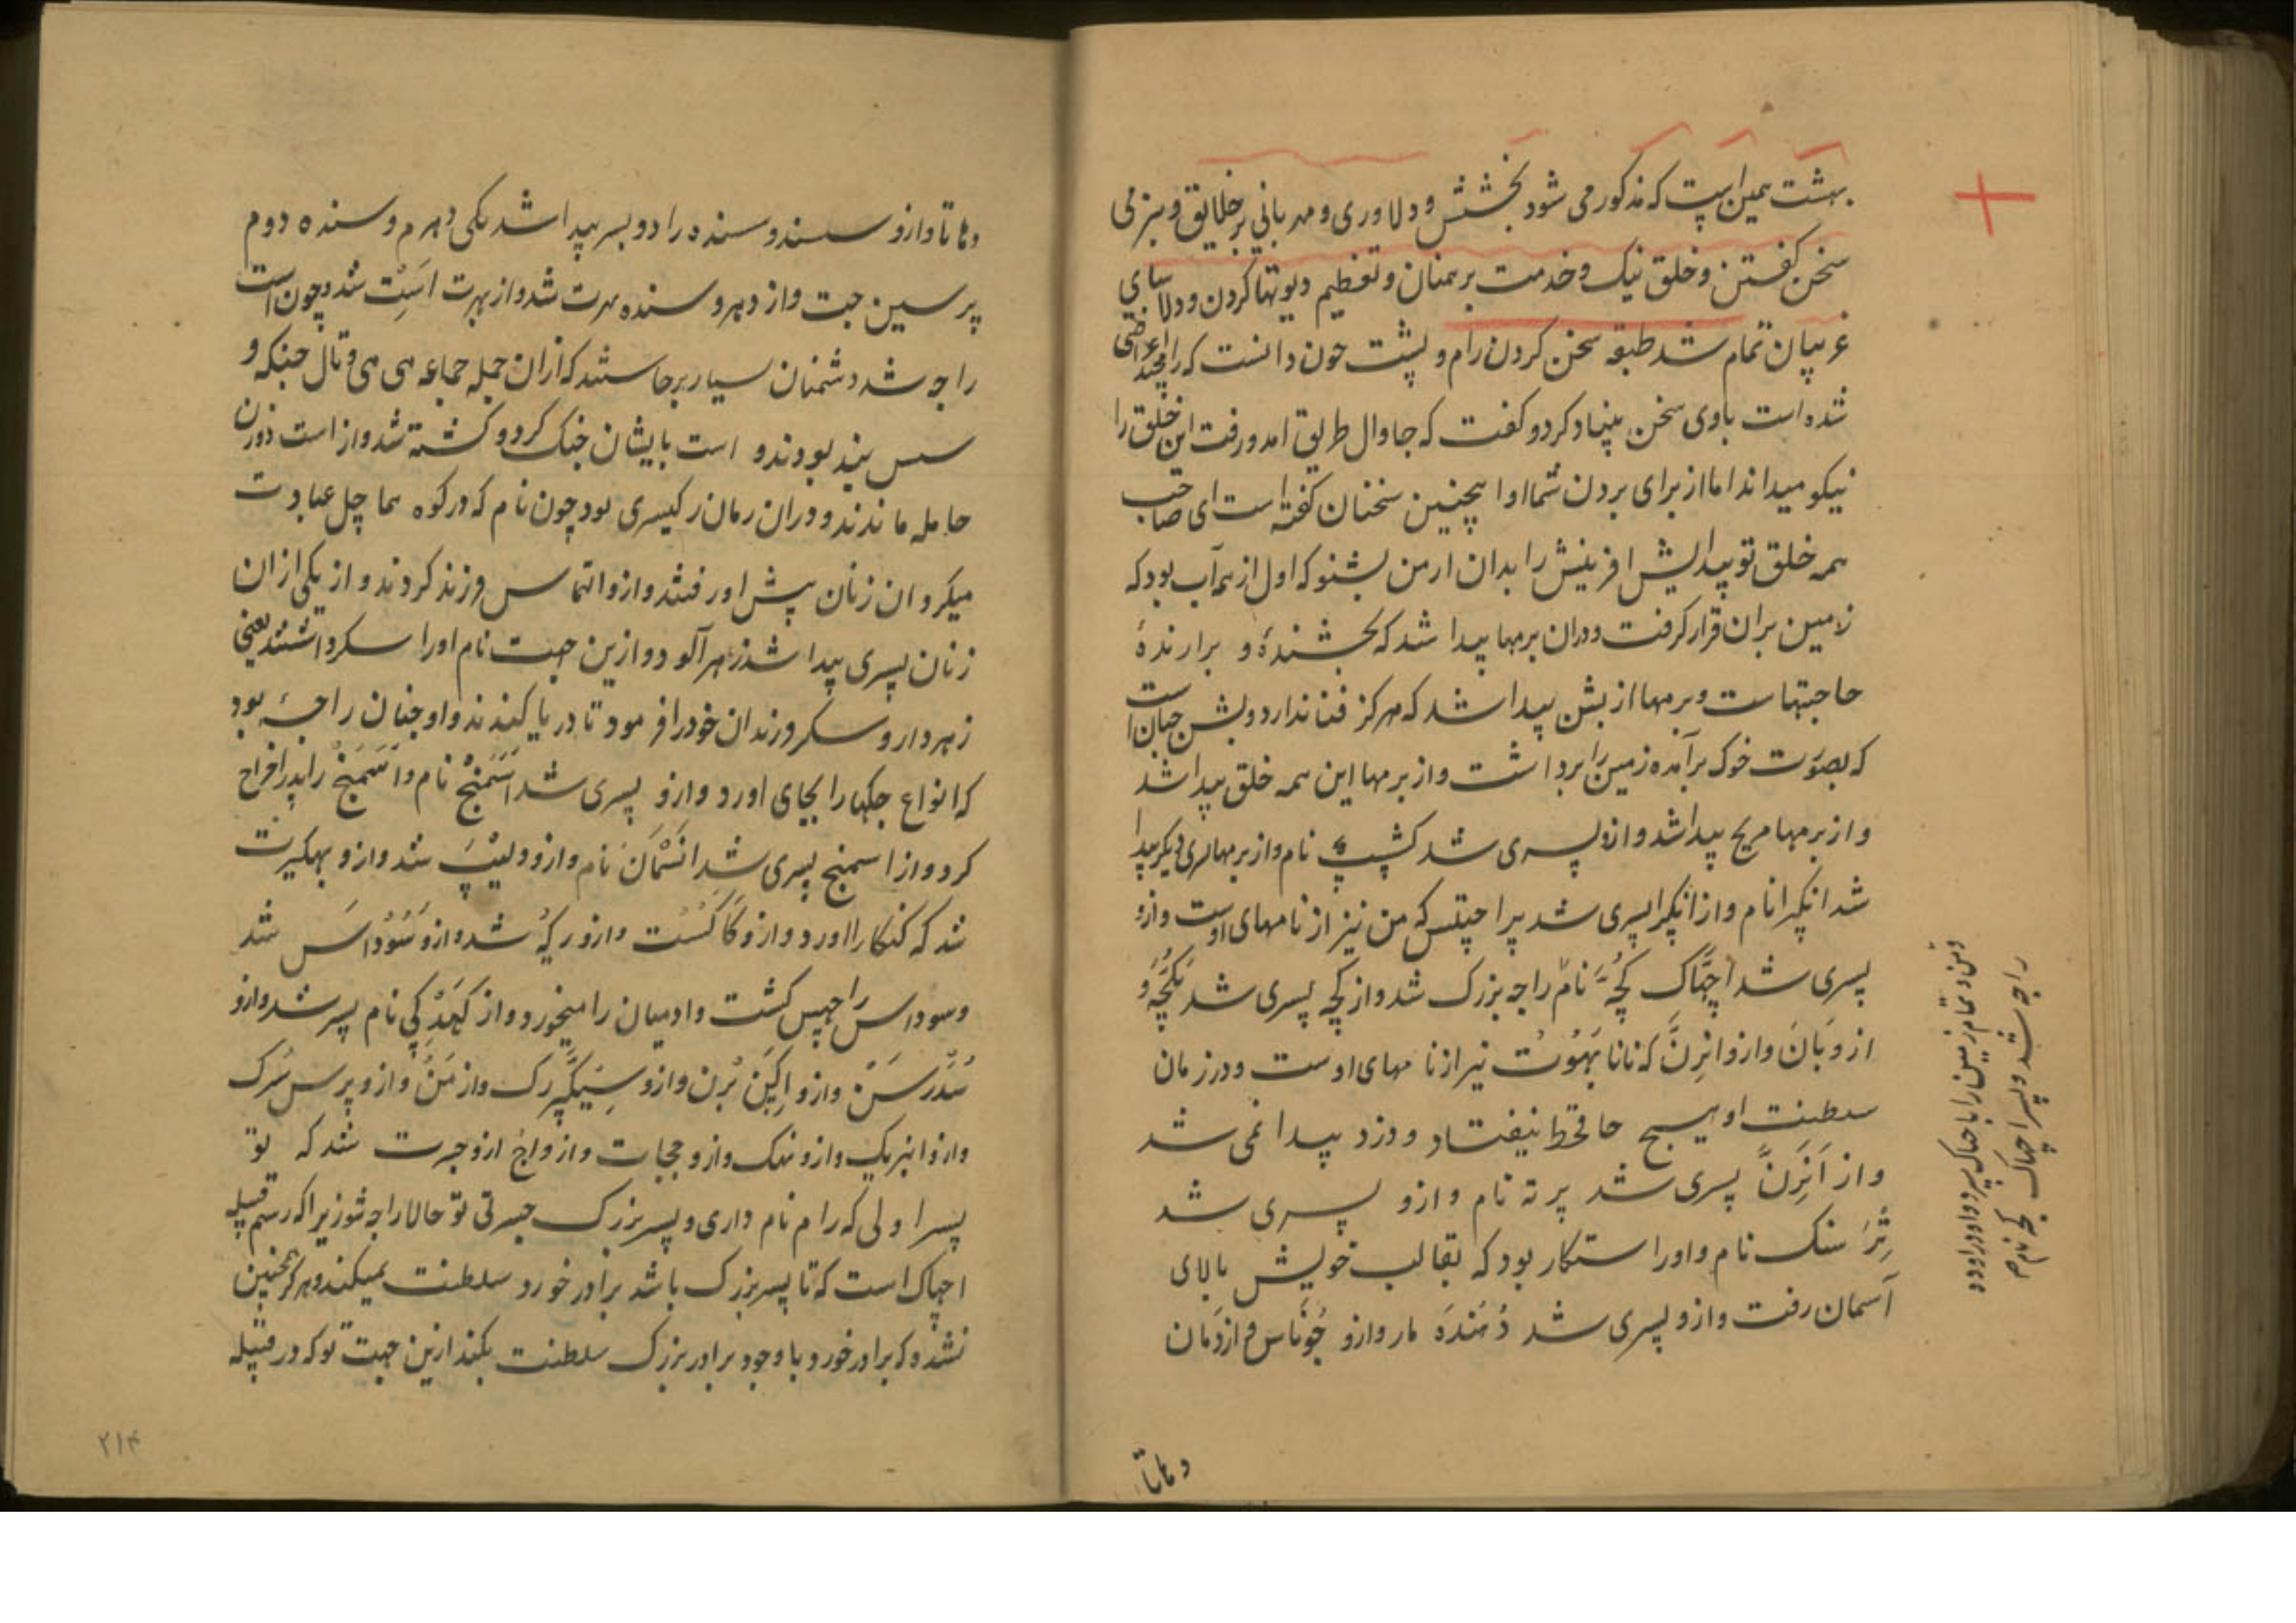 بهشت همین است که مذکور می شود بخشش و دلاوری و مهربانی بر خلایق و بنرمی
سخن کفتن و خلق نیک و خدمت برهمنان و تعظیم دیوتها کردن و دلاسای
غریبان تمام شد طبقه سخن کردن رام و بشت چون دانست که رامچند اعراضی
شده است باوی سخن بنیاد کرد و کفت که جاوال طریق امد و رفت این خلق را
نیکو میداند اما از برای بردن شما اوا اینچنین سخنان کفته است ای صاحب
همه خلق تو پیدایش افرینش را بدان ازمن بشنو که اول از همه آب بود که
زمین بران قرار کرفت و دران برمها پیدا شد که بخشندهٔ و برارندهٔ
حاجتهاست و برمها از بشن پیدا شد که هرکز فنا ندارد و بشن جهان است
که بصورت خوک برآمده زمین را برداشت و از برمها این همه خلق پیدا شد
و از برمها مریچ پیدا شد و ازو پسری شد کشیپ نام و از برمها پسری دیکر پیدا
شد انکرا نام و از انکرا پسری شد پراچیتس که من نیز از نامهای اوست و ازو
پسری شد اچهاک کچه نام راجه بزرک شد و از کچه پسری شد بکچه و
ازو بان و ازو انرن که نانا بهوت نیز از نامهای اوست و در زمان
سلطنت او هیچ جا قحط نیفتاد و دزد پیدا نمی شد
و از انرن پسری شد پرته نام و ازو پسری شد
ترسنک نام و او راستکار بود که بقالب خویش بالای
آسمان رفت و ازو پسری شد دمنده مار و ازو جوناس و از
ومن و تمام زمین را با چهاک سپرد و او در اودد
راجه شد و پسر اچهاک کچه نام
وماتا
وماتا و ازو سسند و سنده را دو پسر پیدا شد یکی دهرم و سنده دوم
پرسین جت و از دهرو سنده بهرت شد و از بهرت است شد و چون است
راجه شد دشمنان بسیار برخاستند که ازان جمله جماعه هی هی و تال جنکه و
سس بند بودند و است بایشان جنک کرد و کشته شد و از است دو زن
حامله ماندند و دران زمان رکیسری بود چون نام که در کوه هماچل عبادت
میکرد ان زنان پیش او رفتند و ازو التماس فرزند کردند و از یکی ازان
زنان پسری پیدا شد زهرآلود و ازین جهت نام او را سکر داشتند یعنی
زهردار و سکر فرزندان خود را فرمود تا دریا کندند و او چنان راجهٔ بود
که انواع جکها را بجای اورد و ازو پسری شد اسمنج نام و اسمنج را پدر اخراج
کرد و از اسمنج پسری شد انشمان نام و ازو دلیپ شد و ازو بهکیرت
شد که کنکا را اورد و ازو کاکست و ازو رکه شد و ازو سوداس شد
و سوداس راچهس کشت و ادمیان را میخورد و از کهد کی نام پسر شد و ازو
سدرسن و ازو اکین برن و ازو سیکپرک و ازو من و ازو پرس سرک
و ازو انبریک و ازو نهک و ازو ججات و ازو اج ازو جسرت شد که تو
پسر اولی که رام نام داری و پسر بزرک جسرتی تو حالا راجه شو زیرا که رسم قبیله
اچهاک است که تا پسر بزرک باشد برادر خورد سلطنت نمیکند و هرکز همچنین
نشده که برادر خورد با وجود برادر بزرک سلطنت بکند ازین جهت تو که در قبیله
۲۱۴